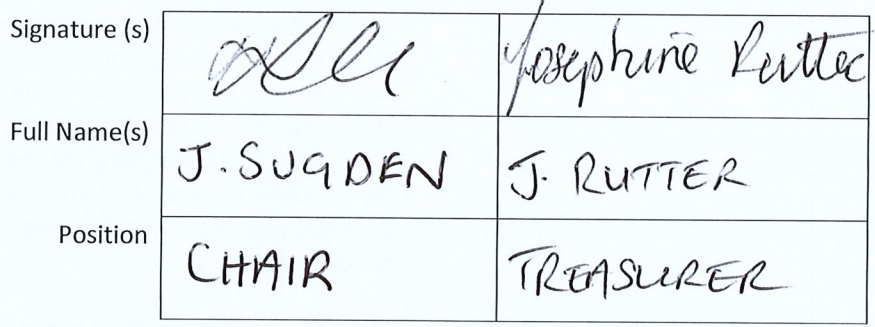 Signature (s) Josephine Rutter
Full Name(s) J. SUGDEN J. RUTTER
Position CHAIR TREASURER